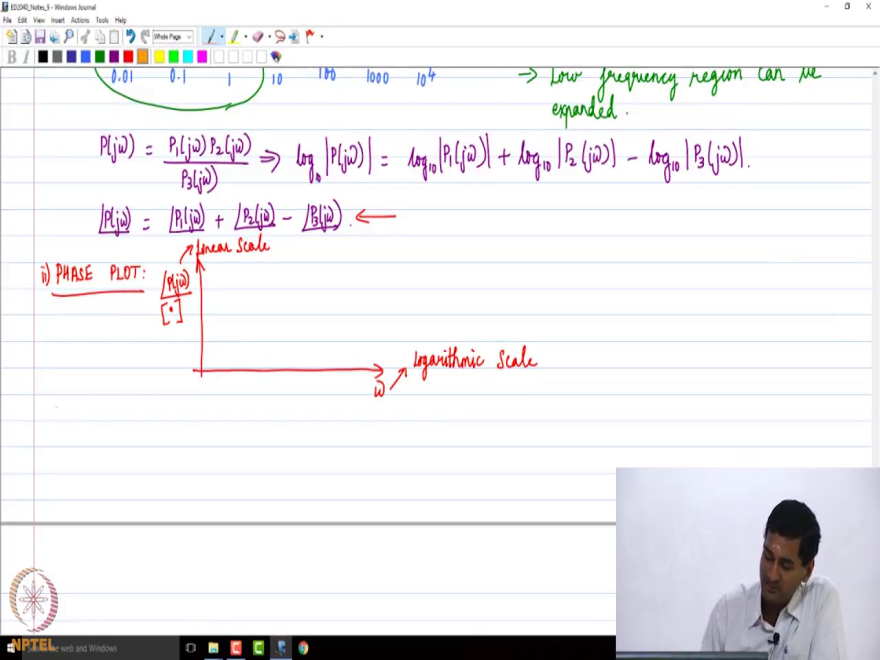 ED2040_Notes_9 - Windows Journal
File Edit View Insert Actions Tools Help
Whole Page
B I
0.01 0.1 1 10 100 1000 10⁴
→ Low frequency region can be expanded.
P(jω) = P₁(jω) P₂(jω) / P₃(jω) ⇒ log₁₀ |P(jω)| = log₁₀ |P₁(jω)| + log₁₀ |P₂(jω)| − log₁₀ |P₃(jω)|.
∠P(jω) = ∠P₁(jω) + ∠P₂(jω) − ∠P₃(jω). ←
Linear Scale
ii) PHASE PLOT:
∠P(jω)
[°]
Logarithmic Scale
ω
NPTEL
the web and Windows